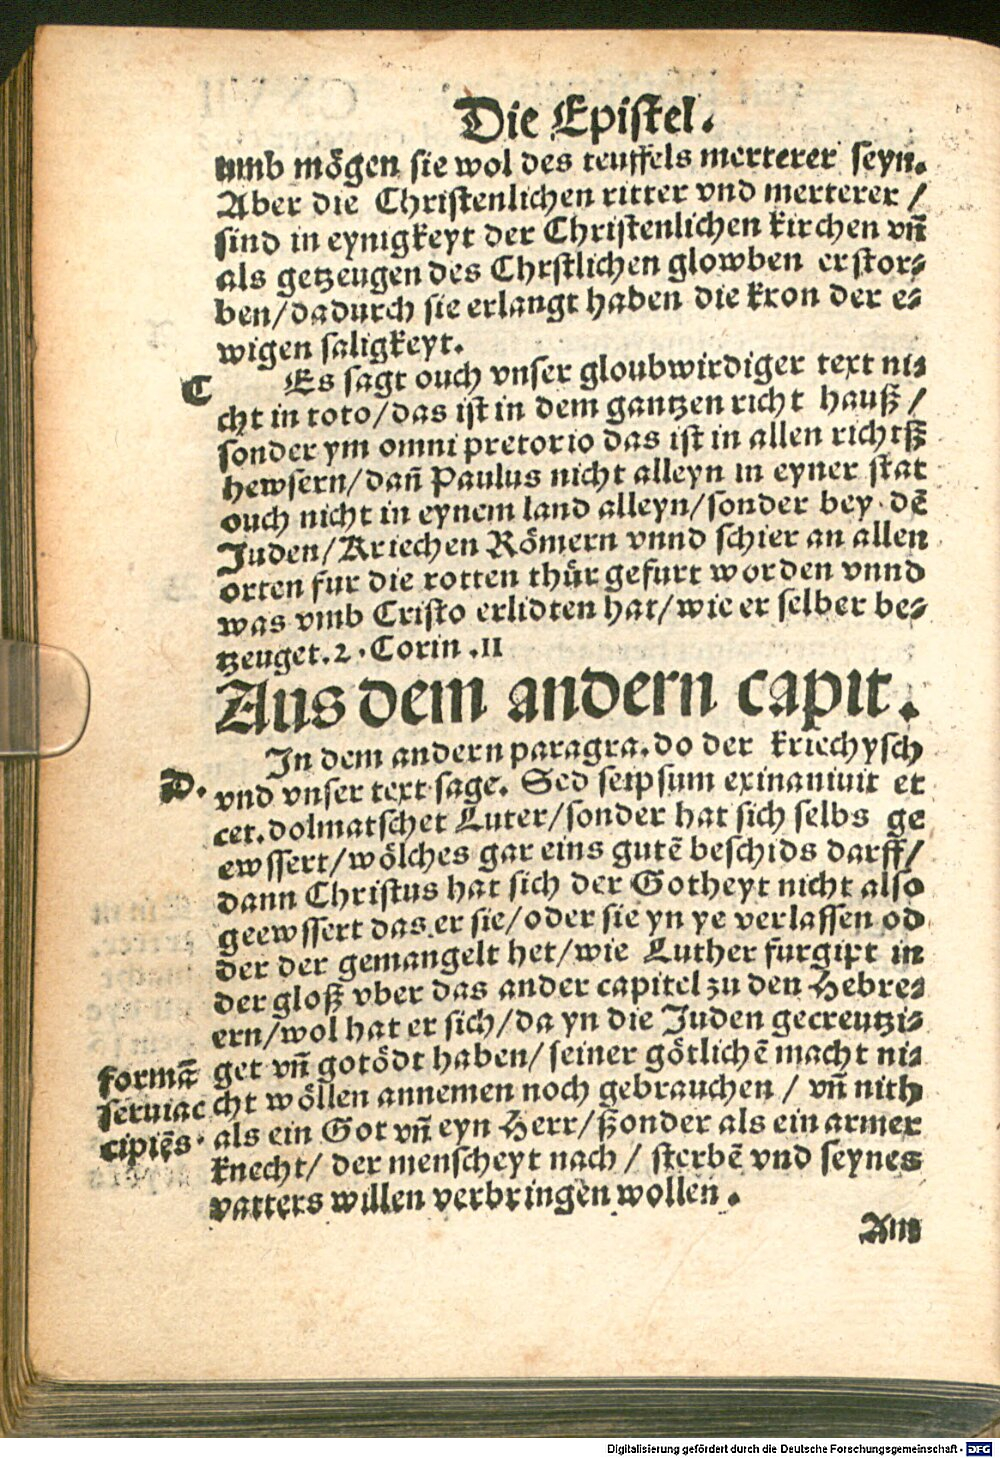 Die Epistel.
umb mögen sie wol des teuffels merterer seyn.
Aber die Christenlichen ritter vnd merterer /
sind in eynigkeyt der Christenlichen kirchen vñ
als getzeugen des Chrstlichen glowben erstor⸗
ben/dadurch sie erlangt haben die kron der e⸗
wigen saligkeyt.
C Es sagt ouch vnser gloubwirdiger text ni⸗
cht in toto/das ist in dem gantzen richt hauß /
sonder ym omni pretorio das ist in allen richtß
hewsern/dañ Paulus nicht alleyn in eyner stat
ouch nicht in eynem land alleyn/sonder bey dē
Juden/Kriechen Römern vnnd schier an allen
orten fur die rotten thür gefurt worden vnnd
was vmb Cristo erlidten hat/wie er selber be⸗
tzeuget.2.Corin.II
Aus dem andern capit.
In dem andern paragra.do der kriechysch
D. vnd vnser text sage. Sed seipsum exinaniuit et
cet.dolmatschet Luter/sonder hat sich selbs ge
ewssert/wölches gar eins gutē beschids darff/
dann Christus hat sich der Gotheyt nicht also
geewssert das er sie/oder sie yn ye verlassen od
der der gemangelt het/wie Luther furgipt in
der gloß vber das ander capitel zu den Hebre⸗
ern/wol hat er sich/da yn die Juden gecreutzi⸗
get vñ gotödt haben/seiner götlichē macht ni⸗
cht wöllen annemen noch gebrauchen / vñ nith
als ein Got vñ eyn Herr/ßonder als ein armer
knecht/ der menscheyt nach / sterbē vnd seynes
vatters willen verbringen wollen.
formā
seruiac
cipiēs.
Aus
Digitalisierung gefördert durch die Deutsche Forschungsgemeinschaft - DFG